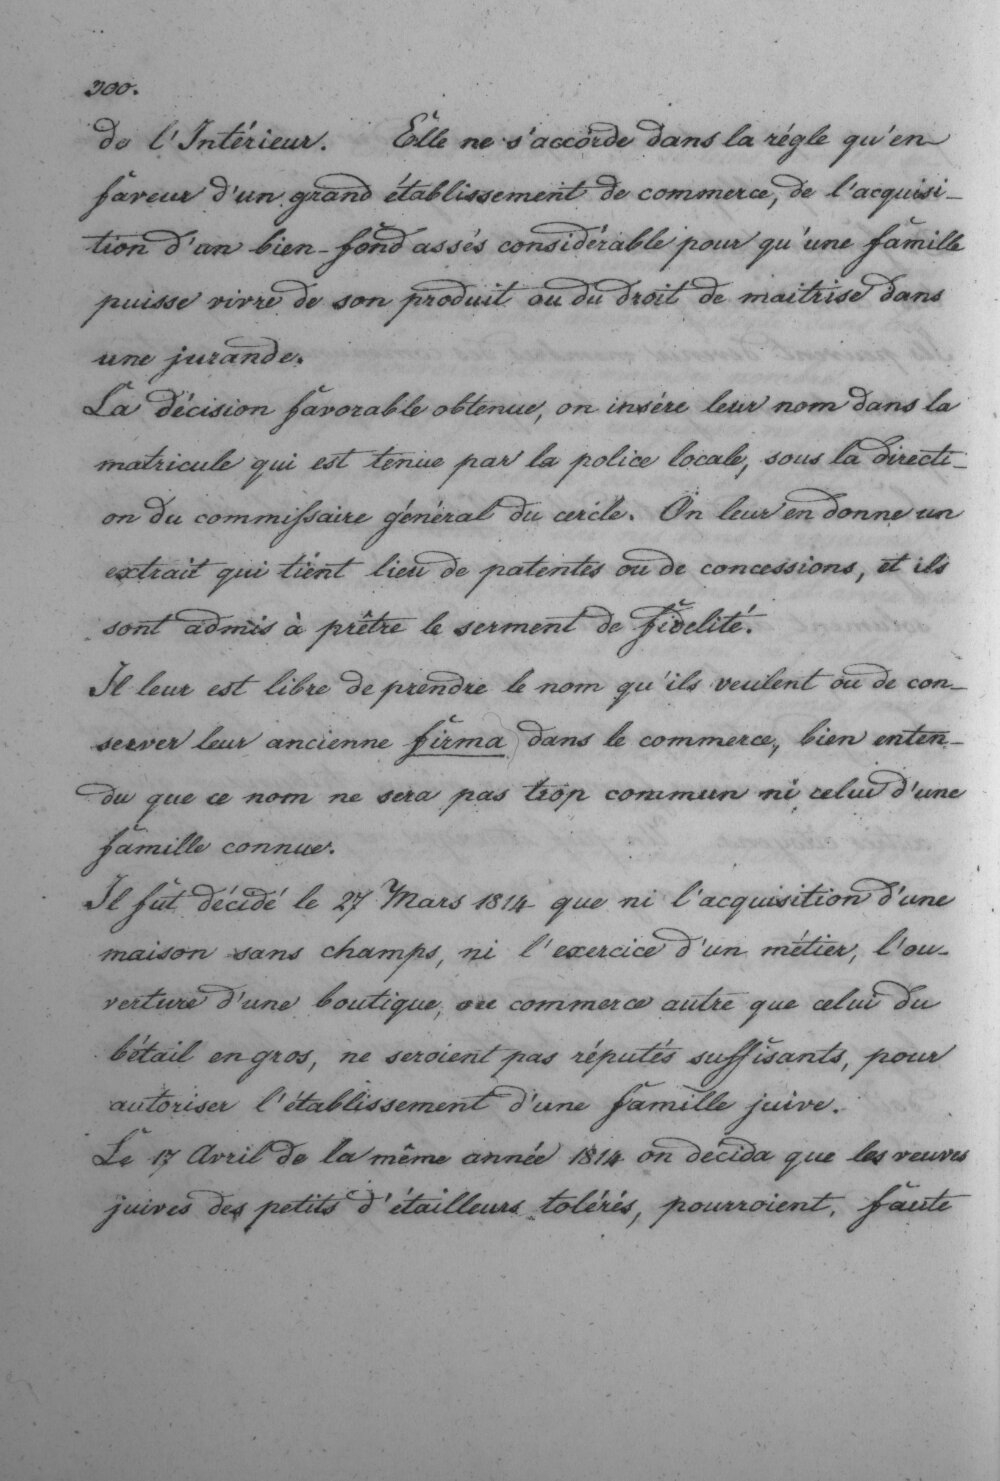 300.
de l'Intérieur. Elle ne s'accorde dans la régle qu'en
faveur d'un grand établissement de commerce, de l'acquisi-
tion d'un bien-fond assés considérable pour qu'une famille
puisse vivre de son produit ou du droit de maitrise dans
une jurande.
La décision favorable obtenue, on insére leur nom dans la
matricule qui est tenue par la police locale, sous la directi-
on du commissaire général du cercle. On leur en donne un
extrait qui tient lieu de patentes ou de concessions, et ils
sont admis à prêtre le serment de fidelité.
Il leur est libre de prendre le nom qu'ils veulent ou de con-
server leur ancienne firma dans le commerce, bien enten-
du que ce nom ne sera pas trop commun ni celui d'une
famille connue.
Il fût décidé le 27 Mars 1814 que ni l'acquisition d'une
maison sans champs, ni l'exercice d'un métier, l'ou-
verture d'une boutique, ou commerce autre que celui du
bétail en gros, ne seroient pas réputés suffisants, pour
autoriser l'établissement d'une famille juive.
Le 17 Avril de la même année 1814 on décida que les veuves
juives des petits d'étailleurs tolérés, pourroient, faute